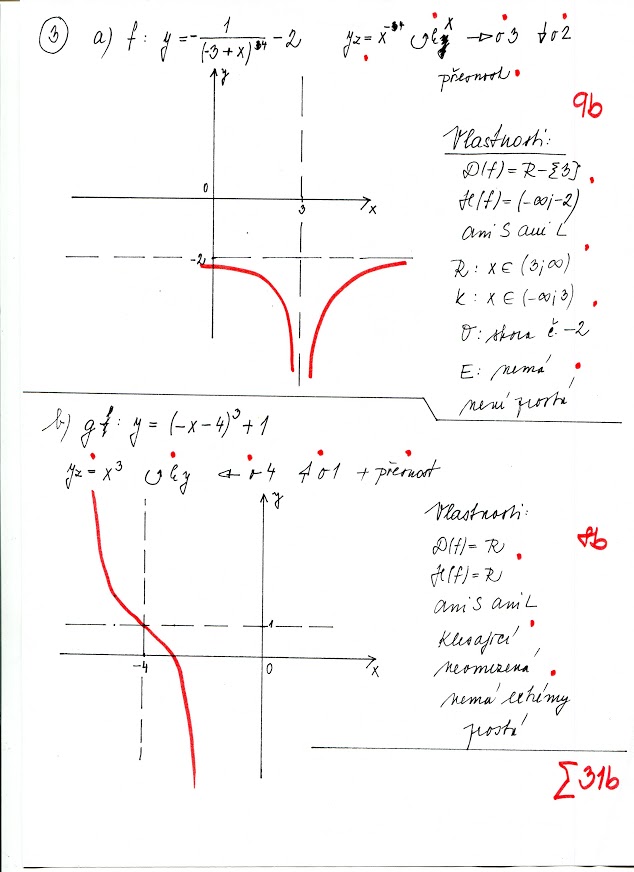 ③ a) f: y = - 1/(-3+x)³⁴ - 2 yz = x⁻³⁴ k x → o 3 ↓ o 2
přesnost
9b
y
0
3
x
-2
Vlastnosti:
D(f) = R - {3}
H(f) = (-∞; -2)
ani S ani L
R: x ∈ (3; ∞)
K: x ∈ (-∞; 3)
O: shora č. -2
E: nemá
není prostá
b) g: y = (-x-4)³ + 1
yz = x³ k y ← o 4 ↑ o 1 + přesnost
y
1
-4
0
x
Vlastnosti:
D(f) = R
H(f) = R
ani S ani L
klesající
neomezená
nemá extrémy
prostá
8b
∑ 31b